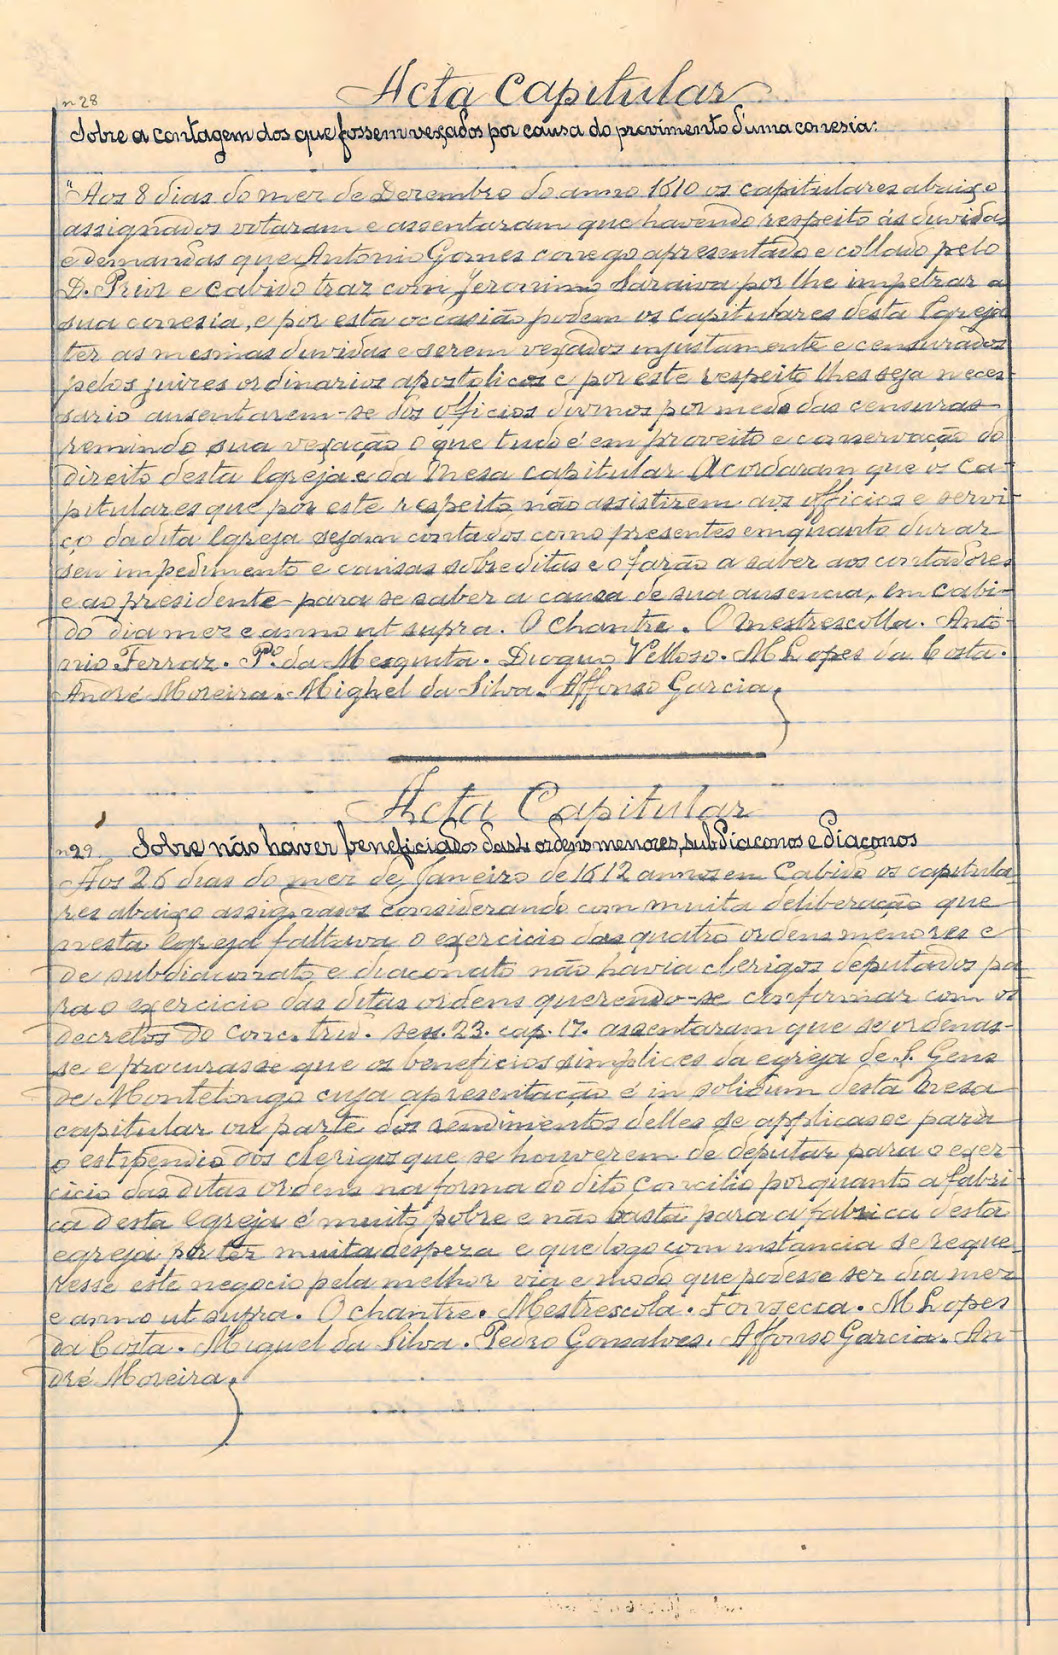 Acta Capitular
nº 28
Sobre a contagem dos que fossem vexados por causa do provimento d'uma conesia:
"Aos 8 dias do mez de Dezembro do anno 1610 os capitulares abaixo
assignados votaram e assentaram que havendo respeito ás duvidas
e demandas que Antonio Gomes conego apresentado e collado pelo
D. Prior e Cabido traz com Jeronimo Saraiva por lhe impetrar a
sua conesia, e por esta occasião podem os capitulares desta Egreja
ter as mesmas duvidas e serem vexados injustamente e censurados
pelos juizes ordinarios apostolicos e por este respeito lhes seja neces-
sario ausentarem-se dos officios divinos por medo das censuras
remindo sua vexação o que tudo é em proveito e conservação do
direito desta Egreja e da Mesa capitular Acordaram que os ca-
pitulares que por este respeito não assistirem aos officios e servi-
ço da dita Egreja sejam contados como presentes emquanto durar
seu impedimento e causas sobreditas e o farão a saber aos contadores
e ao presidente para se saber a causa de sua ausencia, em cabi-
do dia mez e anno ut supra. O Chantre. O mestrescolla. Anto-
nio Ferraz. Pº. da Mesquita. Dioguo Velloso. M Lopes da Costa.
André Moreira. Mighel da Silva. Affonso Garcia.
Acta Capitular
nº 29 Sobre não haver beneficiados das 4 ordens menores, subdiaconos e diaconos
Aos 26 dias do mez de Janeiro de 1612 annos em Cabido os capitula-
res abaixo assignados considerando com muita deliberação que
nesta Egreja faltava o exercicio das quatro ordens menores e
de subdiaconato e diaconato não havia clerigos deputados pa-
ra o exercicio das ditas ordens querendo-se confirmar com os
decretos do Conc. trid. sess. 23. cap. 17. assentaram que se ordenas-
se e procurasse que os beneficios simplices da egreja de S. Gens
de Montelongo cuja apresentação é in solidum desta Mesa
capitular ou parte dos rendimentos delles se applicasse para
o estipendio dos clerigos que se houverem de deputar para o exer-
cicio das ditas ordens na forma do dito Concilio porquanto a fabri-
ca desta Egreja é muito pobre e não basta para a fabrica desta
egreja por ter muita despeza e que logo com instancia se reque-
resse este negocio pela melhor via e modo que podesse ser dia mez
e anno ut supra. O chantre. Mestrescola. Fonsecca. M Lopes
da Costa. Miguel da Silva. Pedro Gonsalves. Affonso Garcia. An-
dré Moreira.